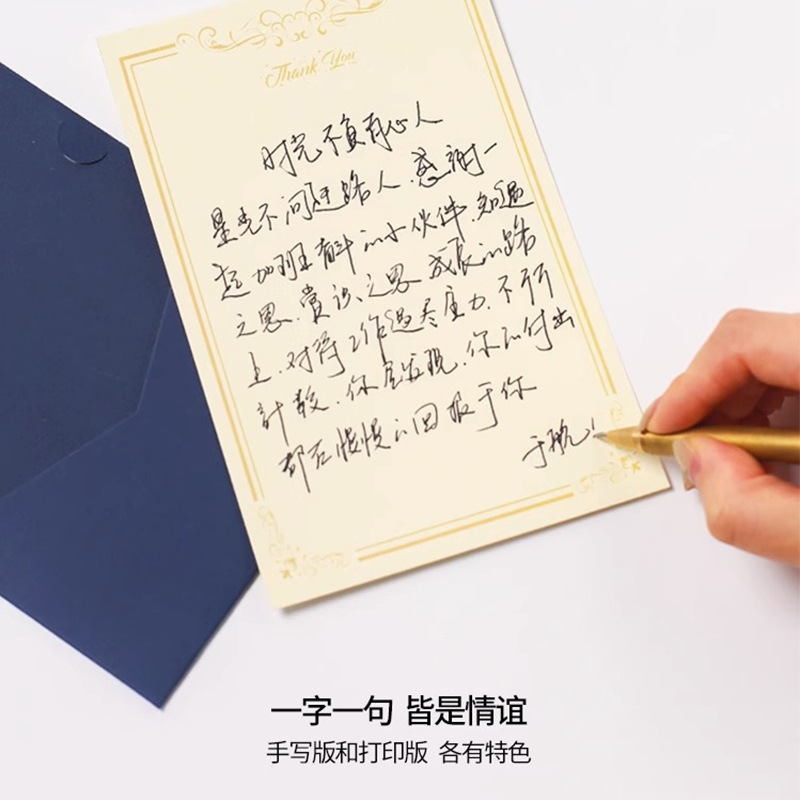 Thank You
时光不负有心人
星光不问赶路人.感谢一
起加班奋斗的小伙伴.知遇
之恩.赏识之恩.成长的路
上.对待工作竭尽全力.不所
計較.你会发现.你的付出
都在慢慢的回报于你
于航!
一字一句 皆是情谊
手写版和打印版 各有特色